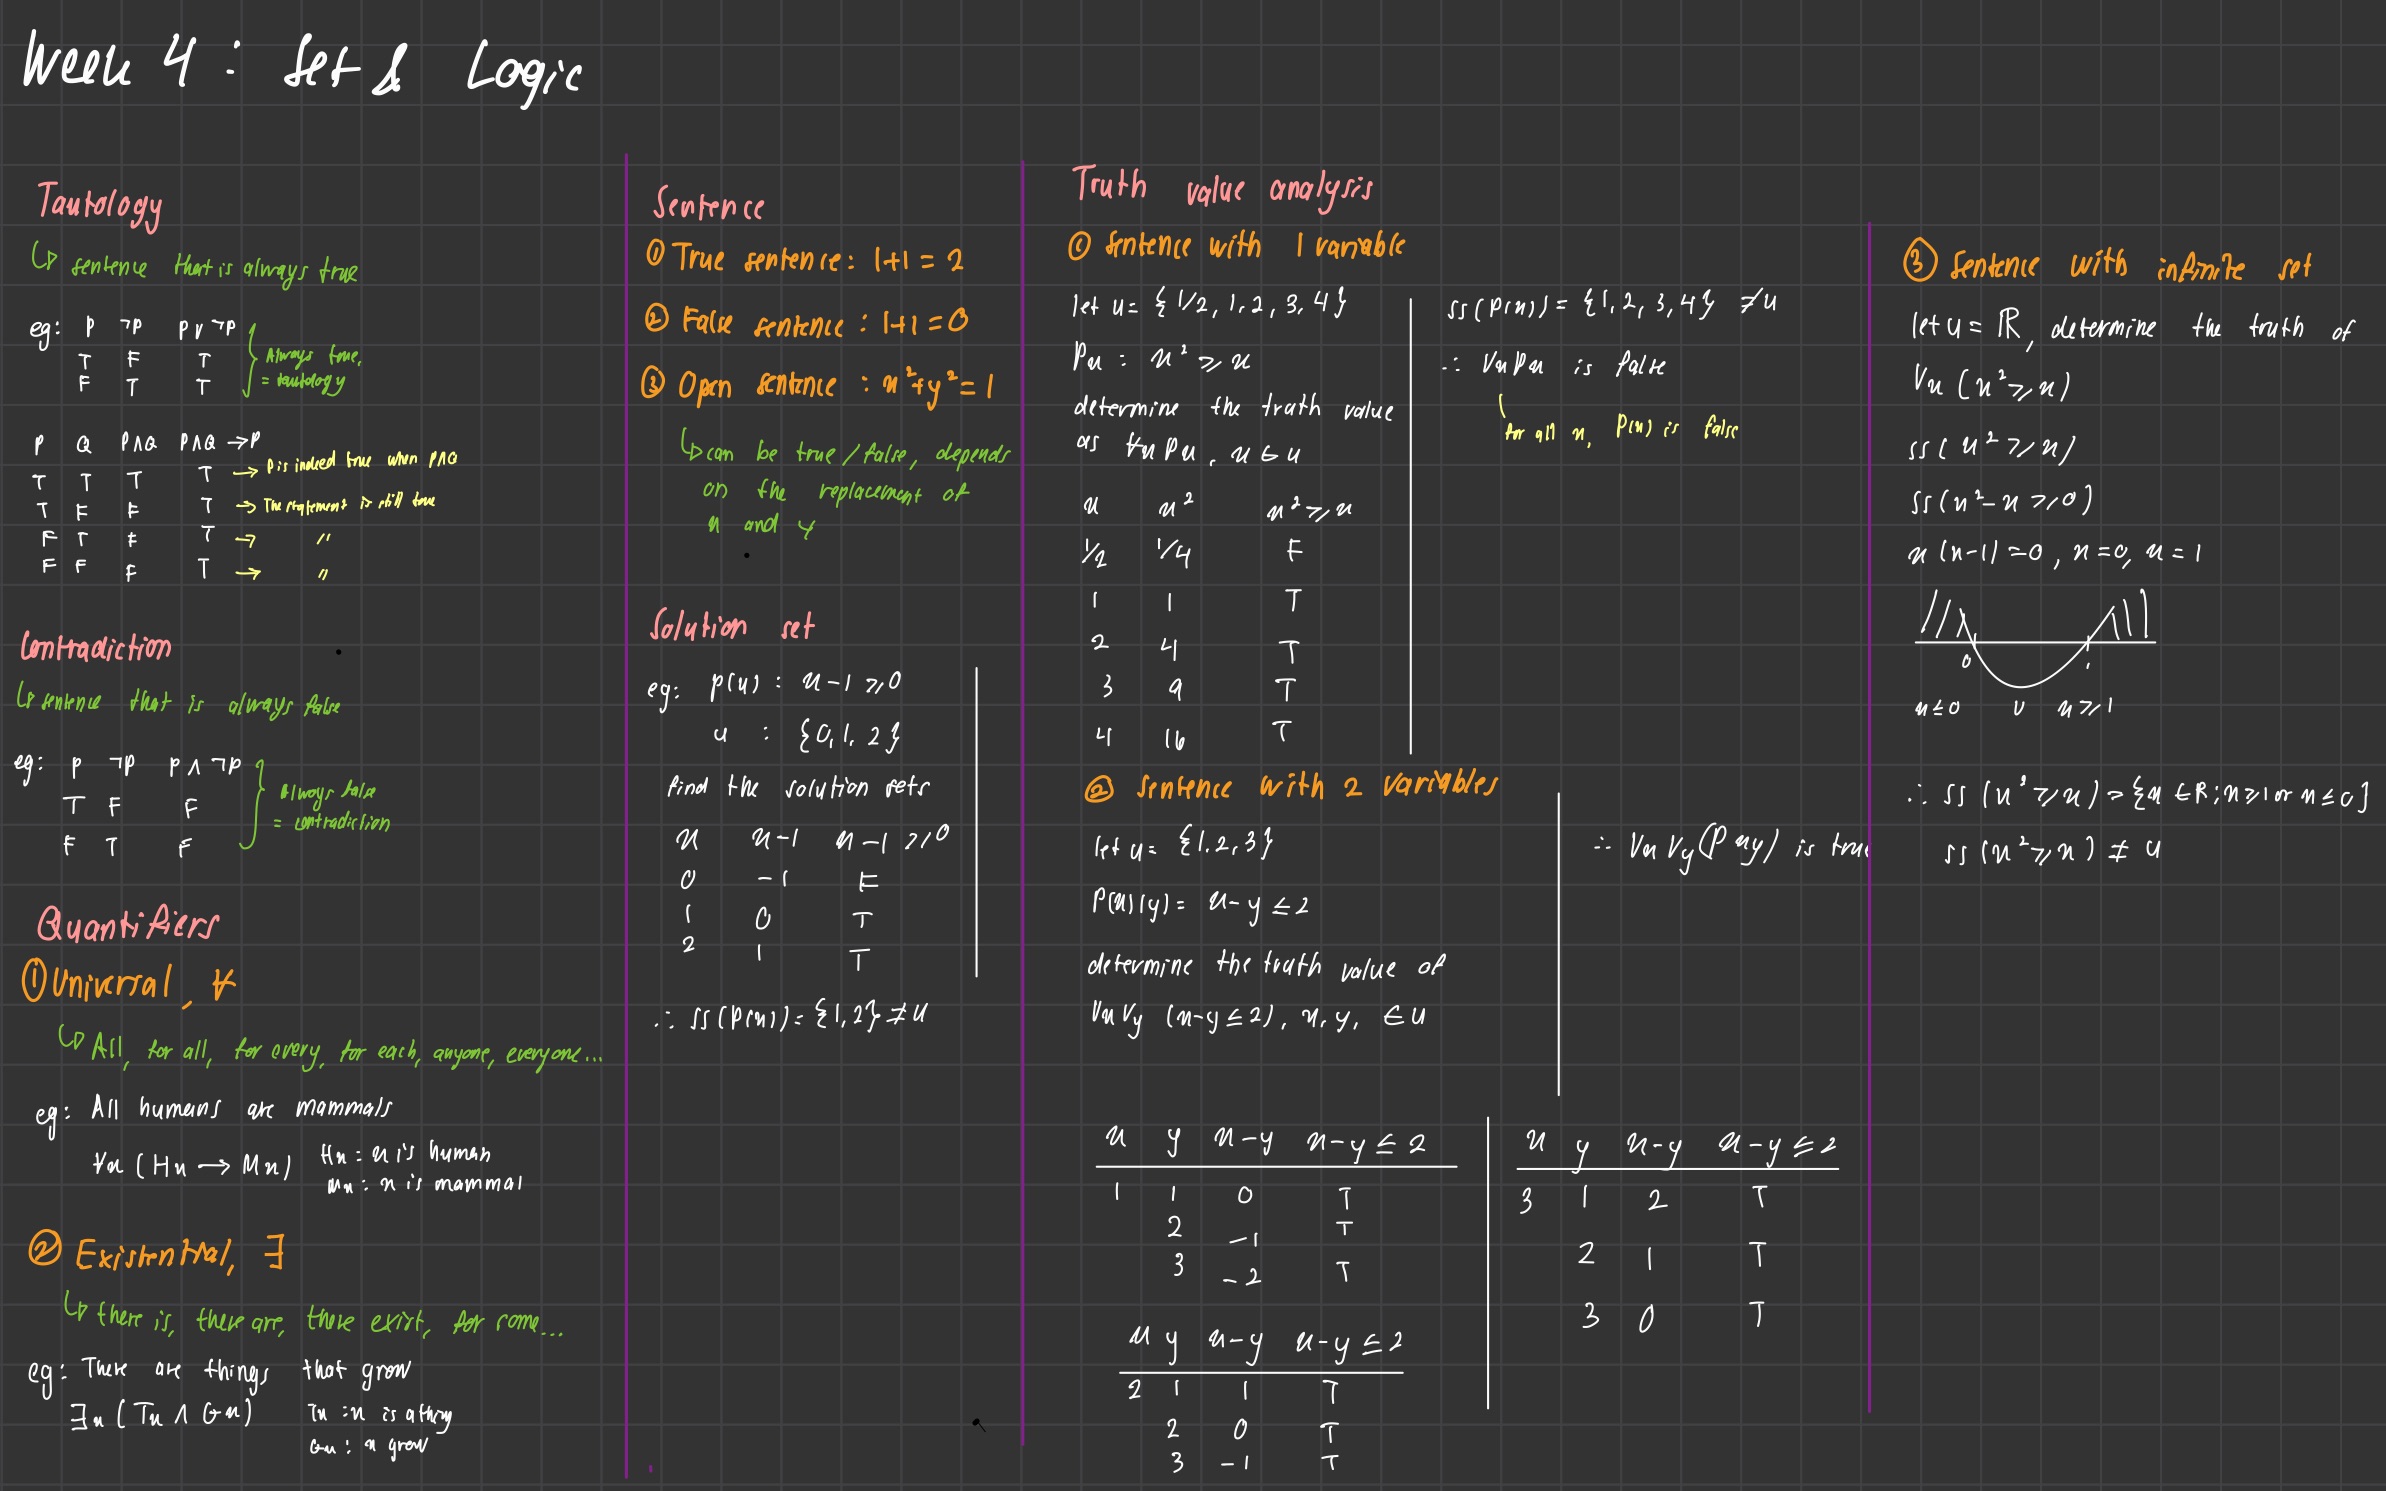 Week 4 : Set & Logic
Tautology
↳ sentence that is always true
eg: P ¬P P∨¬P
T F T
F T T
Always true,
= tautology
P Q P∧Q P∧Q →P
T T T T → P is indeed true when P∧Q
T F F T → The statement is still true
F T F T → "
F F F T → "
Contradiction
↳ sentence that is always false
eg: P ¬P P∧¬P
T F F
F T F
Always false
= contradiction
Quantifiers
① Universal, ∀
↳ All, for all, for every, for each, anyone, everyone...
eg: All humans are mammals
∀x (Hx → Mx)
Hx : x is human
Mx : x is mammal
② Existential, ∃
↳ there is, there are, there exist, for some...
eg: There are things that grow
∃x (Tx ∧ Gx)
Tx : x is a thing
Gx : x grow
Sentence
① True sentence: 1+1 = 2
② False sentence : 1+1 = 0
③ Open sentence : x²+y² = 1
↳ can be true/false, depends
on the replacement of
x and y
Solution set
eg: p(x) : x-1 ≥0
u : {0,1,2}
find the solution sets
x x-1 x-1 ≥0
0 -1 F
1 0 T
2 1 T
∴ ss(P(x)) = {1,2} ≠ U
Truth value analysis
① Sentence with 1 variable
let u = {1/2, 1, 2, 3, 4}
Px : x² ≥ x
determine the truth value
as ∀xPx, x ∈ u
x x² x² ≥ x
1/2 1/4 F
1 1 T
2 4 T
3 9 T
4 16 T
ss(P(x)) = {1, 2, 3, 4} ≠ U
∴ ∀xPx is false
for all x, P(x) is false
② Sentence with 2 variables
let u = {1,2,3}
P(x)(y) = x-y ≤ 2
determine the truth value of
∀x∀y (x-y ≤ 2), x, y, ∈ U
∴ ∀x∀y(Pxy) is true
x y x-y x-y ≤ 2
1 1 0 T
2 -1 T
3 -2 T
x y x-y x-y ≤ 2
2 1 1 T
2 0 T
3 -1 T
x y x-y x-y ≤ 2
3 1 2 T
2 1 T
3 0 T
③ Sentence with infinite set
let u = ℝ, determine the truth of
∀x (x² ≥ x)
ss( x² ≥ x)
ss(x²-x ≥ 0)
x (x-1) = 0, x = 0, x = 1
0 1
x ≤ 0 ∪ x ≥ 1
∴ ss (x² ≥ x) = {x ∈ R; x ≥ 1 or x ≤ 0}
ss (x² ≥ x) ≠ U